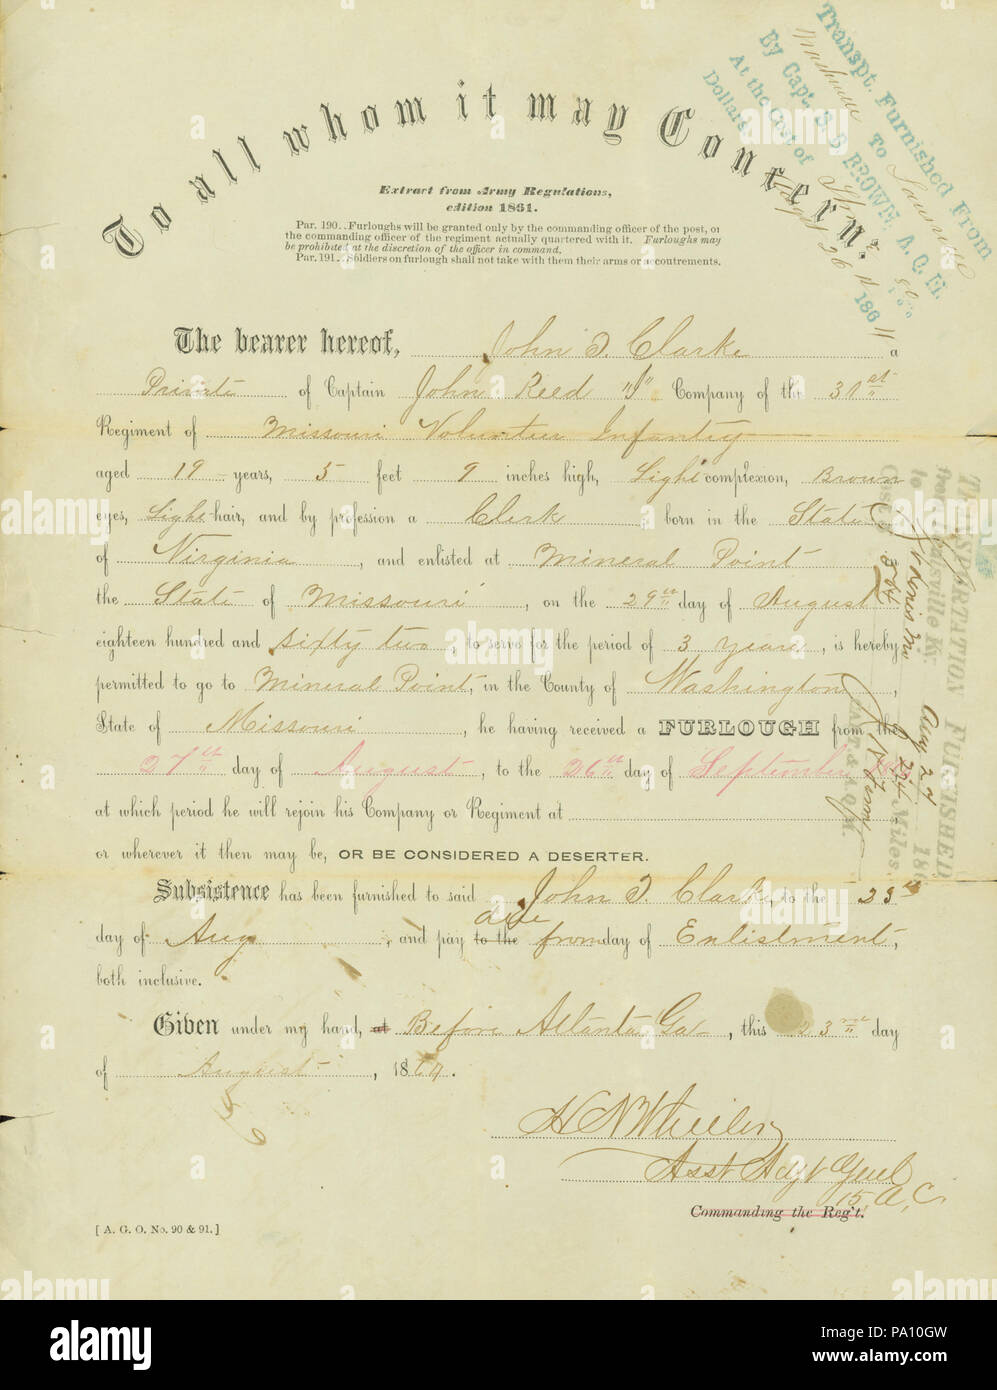 To all whom it may Concern:
Extract from Army Regulations,
edition 1861.
Par. 190..Furloughs will be granted only by the commanding officer of the post, or
the commanding officer of the regiment actually quartered with it. Furloughs may
be prohibited at the discretion of the officer in command.
Par. 191..Soldiers on furlough shall not take with them their arms or accoutrements.
Transpt. Furnished From
To Louisville
By Capt. S. B. BROWN A. Q. M.
At the Cost of
Dollars
Aug 26 1864
The bearer hereof, John T. Clarke a
Private of Captain John Reed "I" Company of the 31st
Regiment of Missouri Volunteer Infantry
aged 19 years, 5 feet 9 inches high, Light complexion, Brown
eyes, Light hair, and by profession a Clerk born in the State
of Virginia, and enlisted at Mineral Point
the State of Missouri, on the 29th day of August
eighteen hundred and sixty two, to serve for the period of 3 years, is hereby
permitted to go to Mineral Point, in the County of Washington,
State of Missouri, he having received a FURLOUGH from the
27th day of August, to the 26th day of September
at which period he will rejoin his Company or Regiment at
or wherever it then may be, OR BE CONSIDERED A DESERTER.
Subsistence has been furnished to said John T. Clarke, to the 23rd
day of Aug, and pay to the due from day of Enlistment,
both inclusive.
Given under my hand, at Before Atlanta Ga, this 23rd day
of August, 1864.
H N Wheeler
Asst Adjt Genl
15 A. C.
Commanding the Reg't.
[A. G. O. No. 90 & 91.]
TRANSPORTATION FURNISHED
from Louisville Ky. Aug 27 186
to St Louis Mo. Miles
Cost $
CAPT. & A. Q. M.
alamy
PA10GW
www.alamy.com